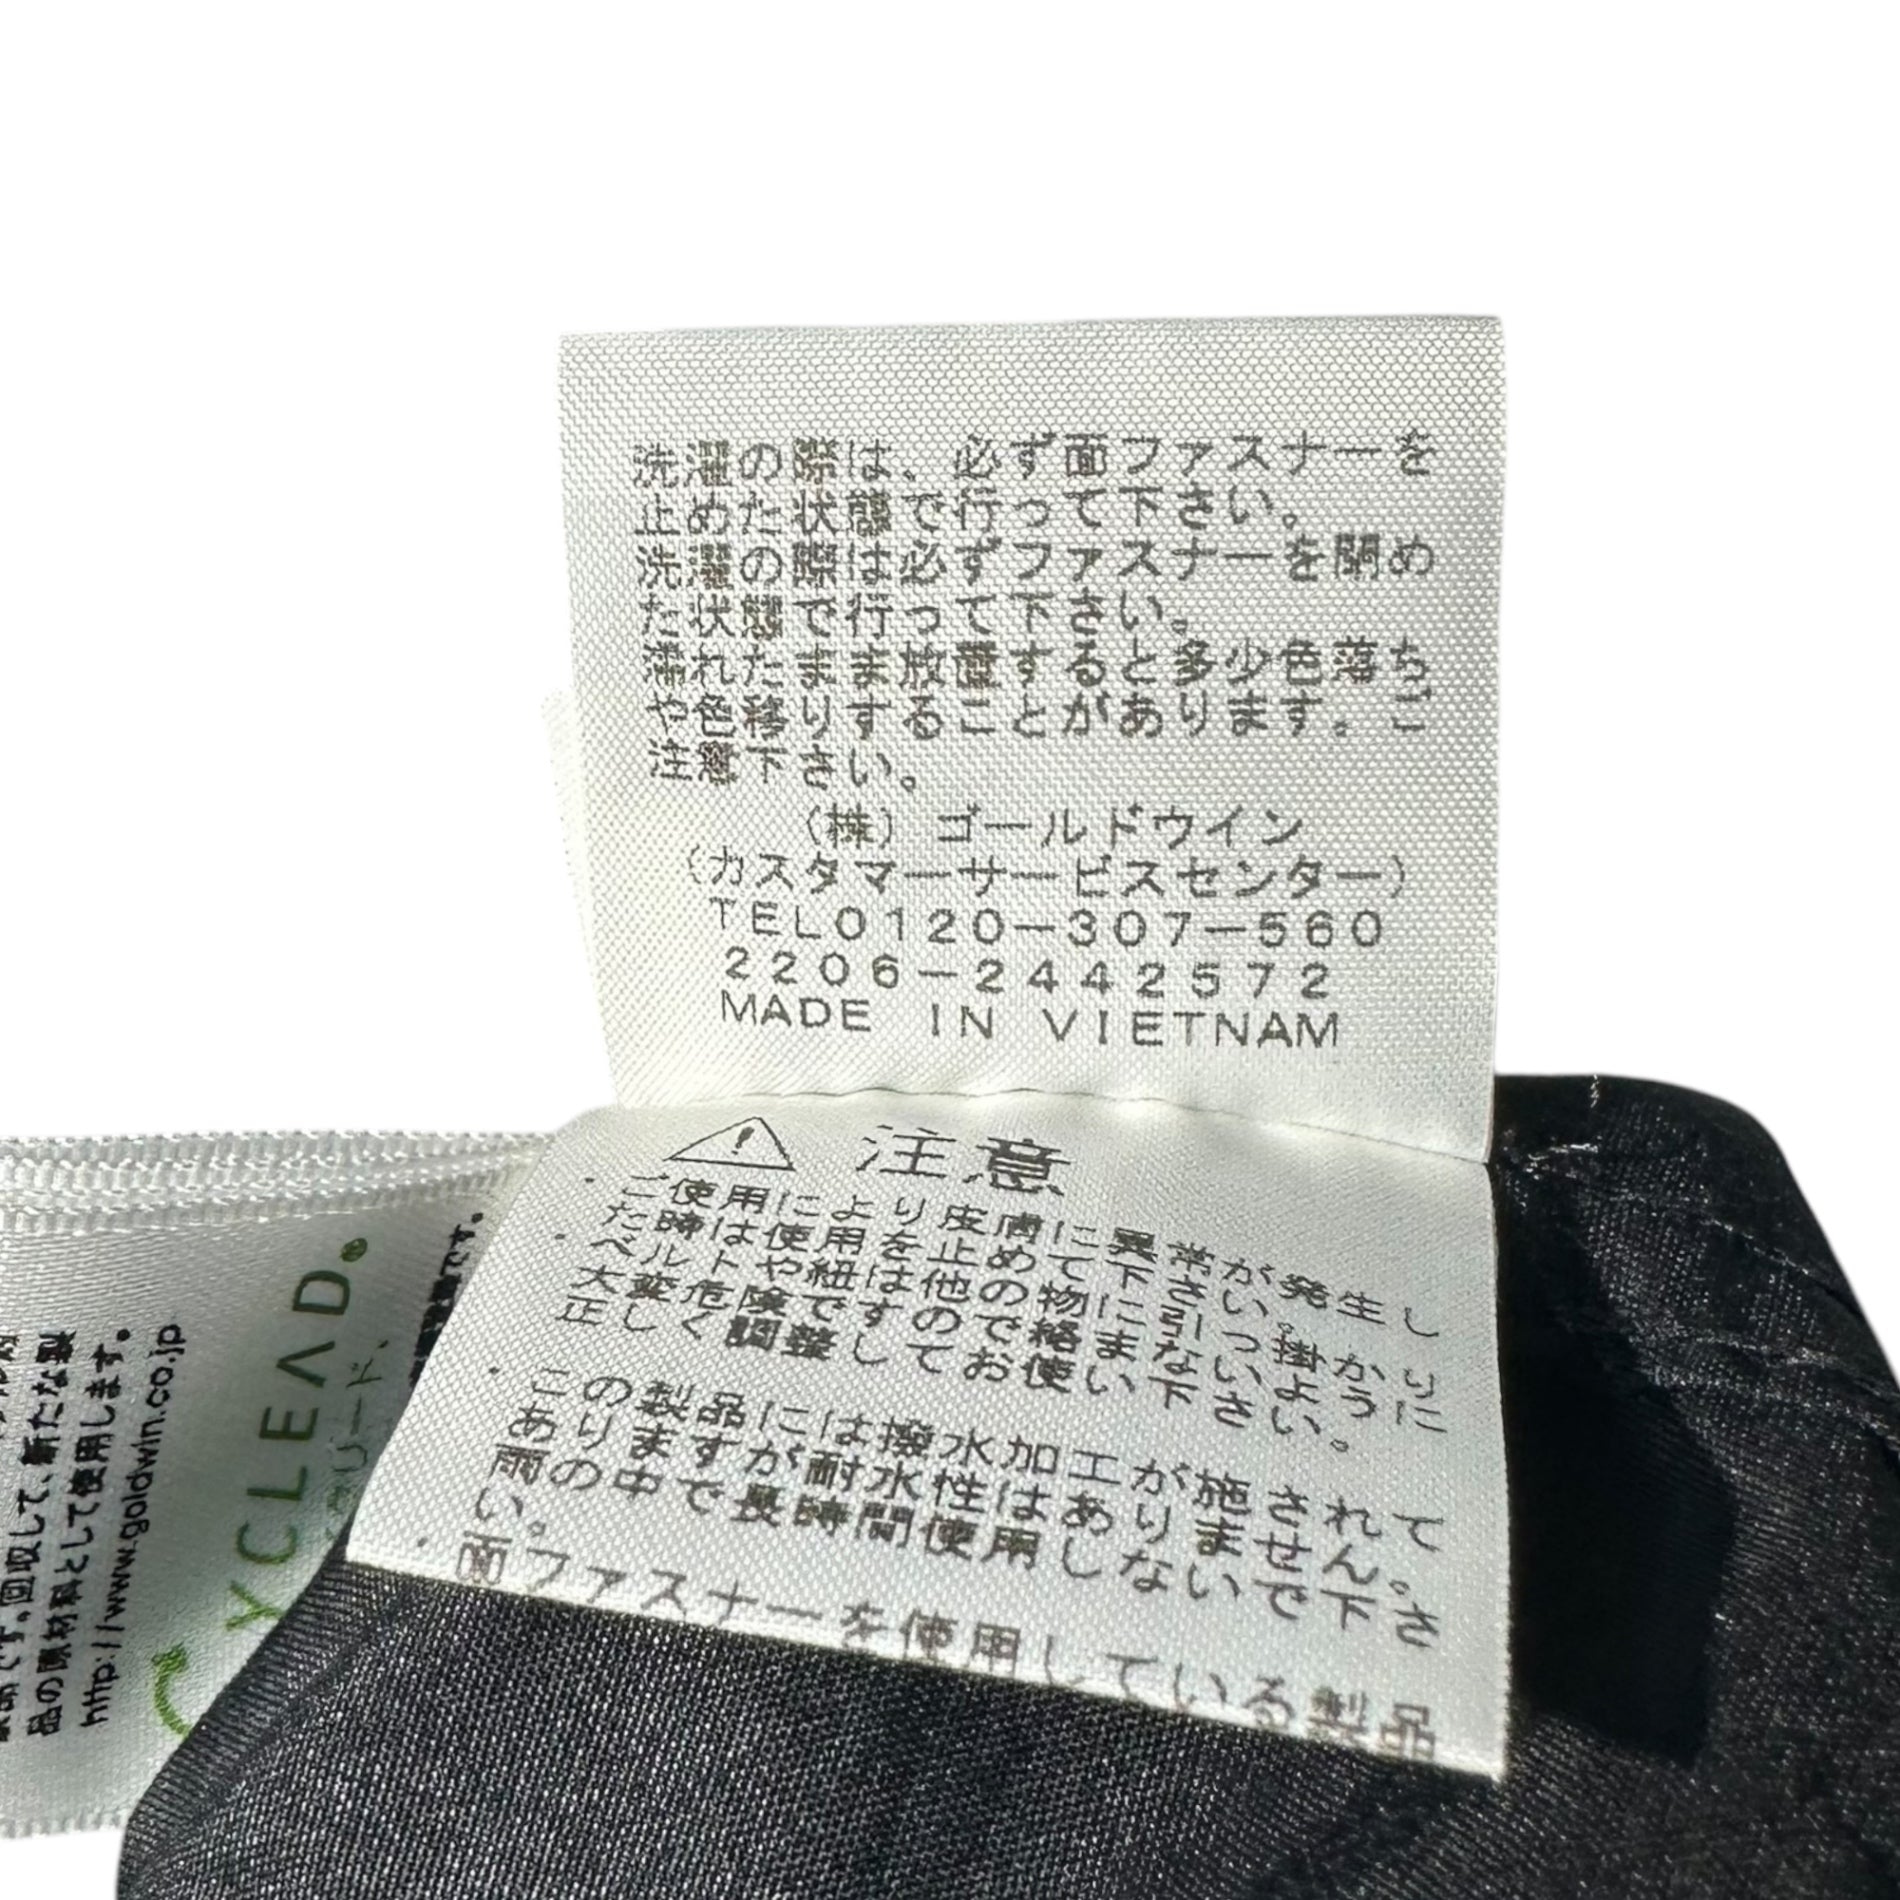 洗濯の際は、必ず面ファスナーを
止めた状態で行って下さい。
洗濯の際は必ずファスナーを閉め
た状態で行って下さい。
濡れたまま放置すると多少色落ち
や色移りすることがあります。ご
注意下さい。
(株) ゴールドウイン
(カスタマーサービスセンター)
TEL0120-307-560
2206-2442572
MADE IN VIETNAM
注意
・ご使用により皮膚に異常が発生し
た時は使用を止めて下さい。
・ベルトや紐は他の物に引っ掛かり
大変危険ですので絡まないように
正しく調整してお使い下さい。
・この製品には撥水加工が施されて
ありますが耐水性はありません。
雨の中で長時間使用しないで下さ
い。
・面ファスナーを使用している製品
です。回収して、新たな製
品の原材料として使用します。
http://www.goldwin.co.jp
CYCLEAD®